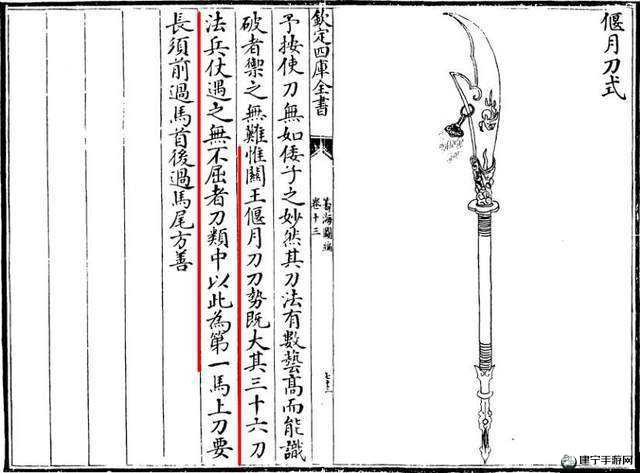 偃月刀式
欽定四庫全書
籌海圖編
卷十三
七十三
予按使刀無如倭子之妙然其刀法有數藝高而能識
破者禦之無難惟關王偃月刀刀勢既大其三十六刀
法兵仗遇之無不屈者刀類中以此為第一馬上刀要
長須前過馬首後過馬尾方善
建宁手游网